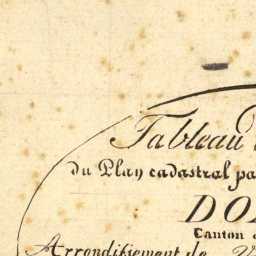 Tableau
du Plan cadastral pa
DO
Canton
Arrondissement de